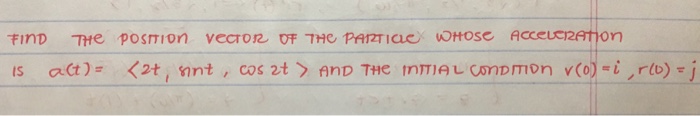 FIND THE POSITION VECTOR OF THE PARTICLE WHOSE ACCELERATION
IS a(t) = <2t, sint, cos 2t> AND THE INITIAL CONDITION v(0) = i, r(0) = j